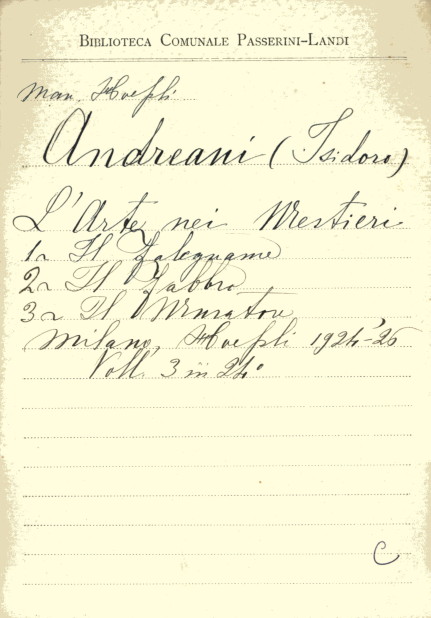 BIBLIOTECA COMUNALE PASSERINI-LANDI
Man. Hoepli
Andreani (Isidoro)
L'Arte nei Mestieri
1º Il Falegname
2º Il Fabbro
3º Il Muratore
Milano, Hoepli 1924-26
Voll. 3 in 24º
C